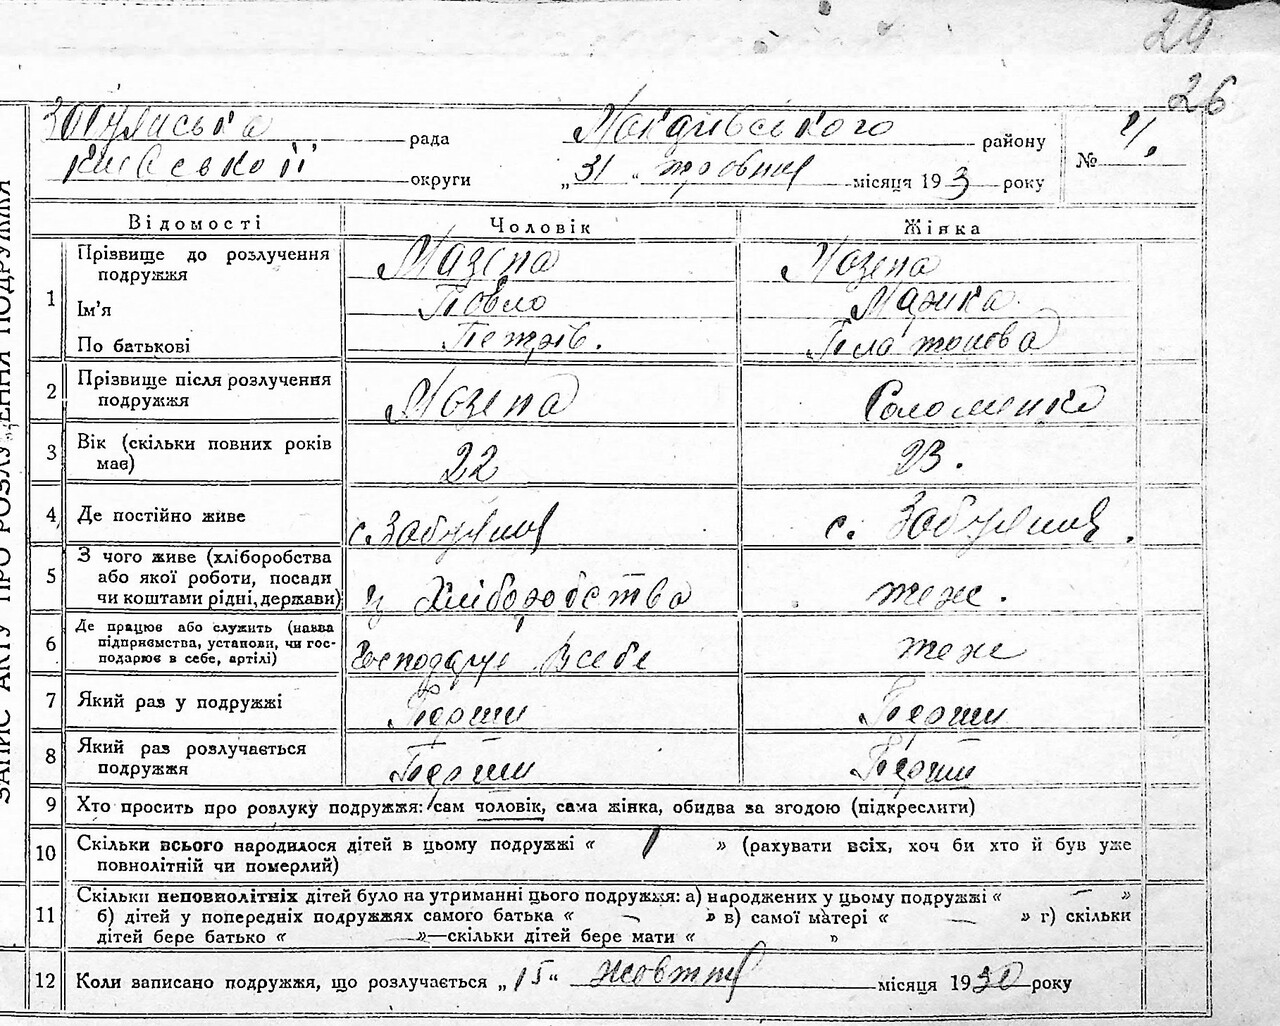 29
26
Забуянська рада Макарівського району № 4.
Київської округи „31" травня місяця 193 року
ЗАПИС АКТУ ПРО РОЗЛУЧЕННЯ ПОДРУЖЖЯ
Відомості Чоловік Жінка
1 Прізвище до розлучення подружжя Мазепа Мозепа
Ім'яПовло Марика
По батькові Петрів. Платонова
2 Прізвище після розлучення подружжя Мозепа Соломенко
3 Вік (скільки повних років має) 22 23.
4 Де постійно живе с. Забуяння с. Забуяння.
5 З чого живе (хліборобства
або якої роботи, посади
чи коштами рідні, держави) з Хліборобства теж.
6 Де працює або служить (назва
підприємства, установи, чи гос-
подарює в себе, артілі) Господарує в себе теж
7 Який раз у подружжі Перши Перши
8 Який раз розлучається подружжя Перши Перши
9 Хто просить про розлуку подружжя: сам чоловік, сама жінка, обидва за згодою (підкреслити)
10 Скільки всього народилося дітей в цьому подружжі « 1 » (рахувати всіх, хоч би хто й був уже
повнолітній чи померлий)
11 Скільки неповнолітніх дітей було на утриманні цього подружжя: а) народжених у цьому подружжі « — »
б) дітей у попередніх подружжях самого батька « — » в) самої матері « — » г) скільки
дітей бере батько « —»—скільки дітей бере мати « »
12 Коли записано подружжя, що розлучається „15" жовтня місяця 1930 року